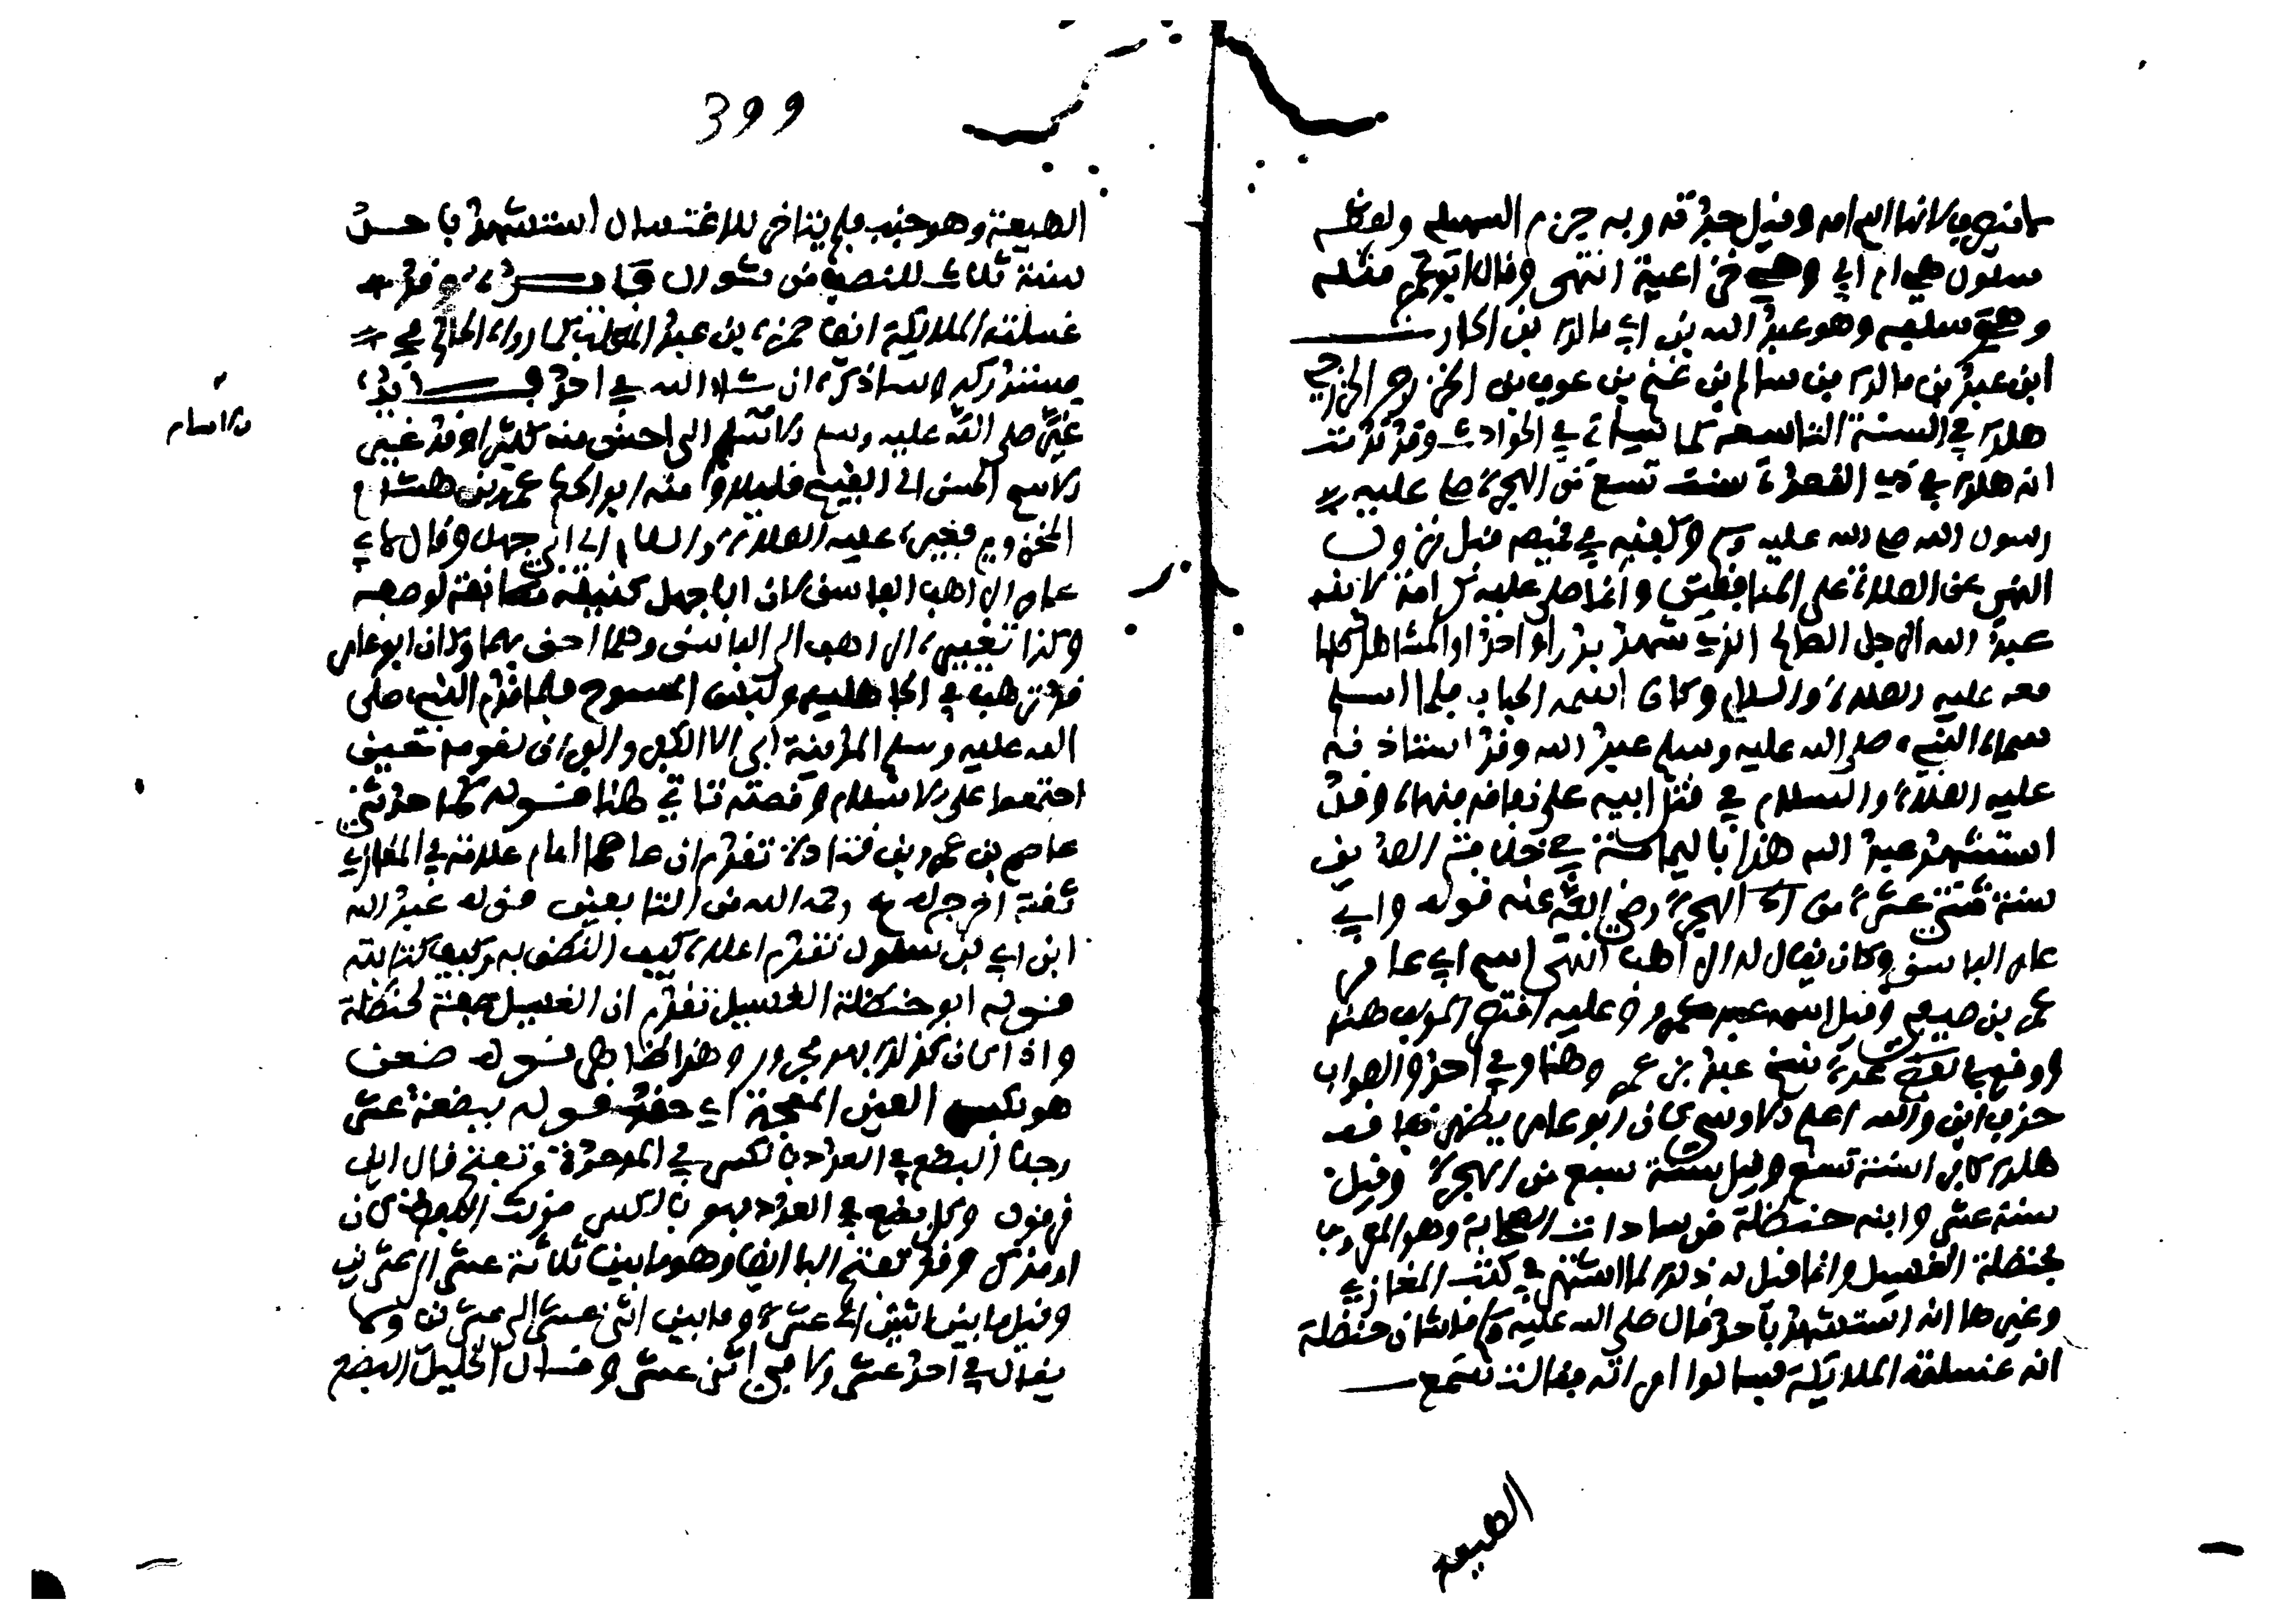 لانها اسم امه وقيل جدته وبه جزم السهيلي ولفظه
سلول هي ام ابي وهي خزاعية انتهى وقال ابو عمر مثله
وهو سلمي وهو عبد الله بن ابي مالك بن الحارث
ابن عبيد بن مالك بن سالم بن غنم بن عوف بن الخزرج الخزرجي
هلك في السنة التاسعة كما سياتي في الحوادث وقد قدمت
انه هلك في ذي القعدة سنة تسع من الهجرة صلى عليه
رسول الله صلى الله عليه وسلم وكفنه في قميصه قبل نزول
النهي عن الصلاة على المنافقين وانما صلى عليه كرامة لابنه
عبد الله الرجل الصالح الذي شهد بدرا واحدا والمشاهد كلها
معه عليه الصلاة والسلام وكان اسمه الحباب فلما اسلم
سماه النبي صلى الله عليه وسلم عبد الله وقد استاذنه
عليه الصلاة والسلام في قتل ابيه على نفاقه فنهاه وقد
استشهد عبد الله هذا باليمامة في خلافة الصديق
سنة ثنتي عشرة من الهجرة رضي الله عنه قوله وابي
عامر الفاسق وكان يقال له الراهب انتهى اسم ابي عامر
عمرو بن صيفي وقيل اسمه عبد عمرو وعليه اقتصر المولف هنا
ووقع في بعض نسخ عبد بن عمرو هنا وفي احد والصواب
حذف ابن والله اعلم الاوسي كان ابو عامر يظهر نفاقه
هلك كافرا سنة تسع وقيل سنة سبع من الهجرة وقيل
سنة عشر وابنه حنظلة من سادات الصحابة وهو المعروف
بحنظلة الغسيل وانما قيل له ذلك لما اشتهر في كتب المغازي
وغيرها انه استشهد باحد فقال صلى الله عليه وسلم ما شان حنظلة
انه غسلته الملائكة فسالوا امراته فقالت سمع
الهيعة
399
الهيعة وهو جنب فلم يتاخر للاغتسال استشهد باحد
سنة ثلاث للنصف من شوال وقد
غسلت الملائكة ايضا حمزة بن عبد المطلب كما رواه الحاكم في
مستدركه وساذكره ان شاء الله في احد فايدة
غير صلى الله عليه وسلم الاسم الى احسن منه كثيرا وقد غير
الاسم الحسن الى القبيح قليلا منه ابو الحكم عمرو بن هشام
المخزومي فغيره عليه الصلاة والسلام الى ابي جهل وقال لابي
عامر الراهب الفاسق لان ابا جهل كنيته مطابقة لوصفه
وكذا تغييره الراهب الى الفاسق وهما احق بهما وكان ابو عامر
قد ترهب في الجاهلية ولبس المسوح فلما قدم النبي صلى
الله عليه وسلم المدينة ابى الا الكفر والفراق لقومه حين
اجتمعوا على الاسلام وقصته تاتي هنا قوله حدثني
عاصم بن عمر بن قتادة تقدم ان عاصما امام علامة في المغازي
ثقة اخرج له ع رحمه الله من التابعين قوله عبد الله
ابن ابي بن سلول تقدم اعلاه كيف النطق به وكيف كتابته
قوله ابو حنظلة الغسيل تقدم ان الغسيل صفة لحنظلة
واذا كان كذلك فهو مجرور وهذا ظاهر قوله ضغن
هو بكسر الغين المعجمة اي حقد قوله ببضعة عشر
رجلا البضع في العدد بالكسر في الموحدة وتفتح قال ابن
قرقول وكل بضع في العدد فهو بالكسر مونث اللفظ كان
او مذكر وقد تفتح البا ايضا وهو ما بين ثلاثة عشر الى عشرين
وقيل ما بين اثنين الى عشرة وما بين اثني عشر الى عشرين ولا
يقال في احد عشر ولا في اثني عشر وقال الخليل البضع